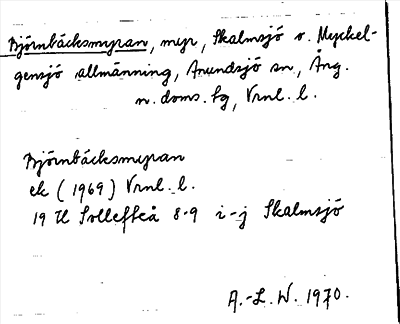 Björnbäcksmyran, myr, Skalmsjö o. Myckel-
gensjö allmänning, Anundsjö sn, Ång.
n. doms. fg, Vrnl. l.
Björnbäcksmyran
ek (1969) Vrnl. l.
19 H Sollefteå 8-9 i-j Skalmsjö
A.-L. W. 1970.